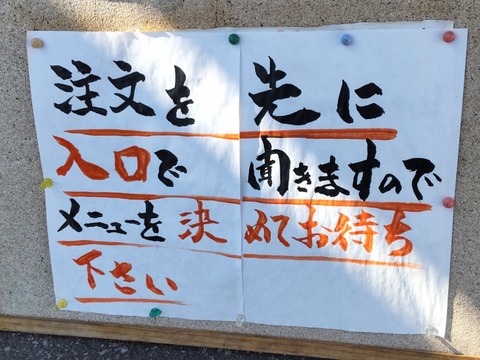 注文を先に
入口で聞きますので
メニューを決めてお待ち
下さい